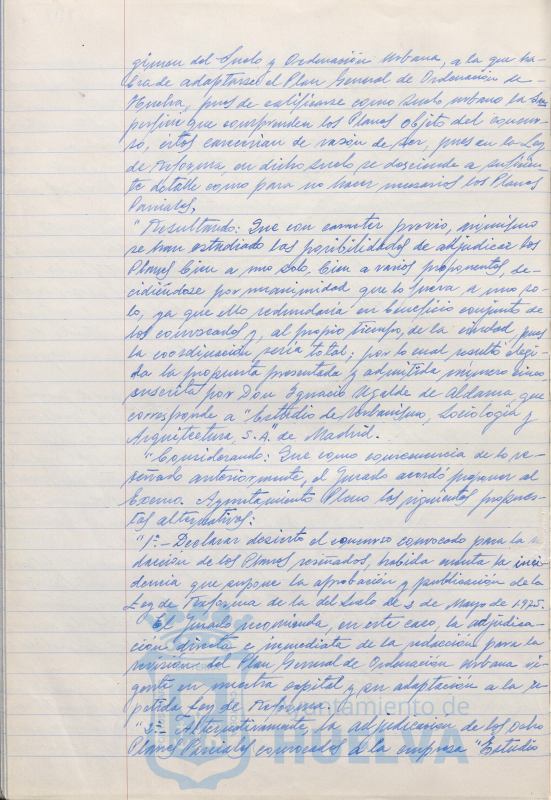 gimen del Suelo y Ordenación Urbana, a la que ha-
bra de adaptarse el Plan General de Ordenación de
Huelva, pues de calificarse como suelo urbano la Su-
perficie que comprenden los Planes objeto del concur-
so, éstos carecerían de razón de ser, pues en la Ley
de Reforma, en dicho suelo, se desciende a suficien-
te detalle como para no hacer necesarios los Planes
Parciales.
"Resultando: Que con caracter previo, asimismo
se han estudiado las posibilidades de adjudicar los
Planes bien a uno solo, bien a varios proponentes, de-
cidiéndose por unanimidad que lo fuera a uno so-
lo, ya que ello redundaría en beneficio conjunto de
los convocados y, al propio tiempo, de la ciudad, pues
la coordinación sería total; por lo cual resultó elegi-
da la propuesta presentada y admitida número cinco
suscrita por Don Ignacio Ugalde de Aldama, que
corresponde a "Estudio de Urbanismo, Sociología y
Arquitectura, S.A." de Madrid.
"Considerando: Que como consecuencia de lo re-
señado anteriormente, el Jurado acordó proponer al
Excmo. Ayuntamiento Pleno las siguientes propues-
tas alternativas:
"1º.- Declarar desierto el concurso convocado para la re-
dacción de los Planes reseñados, habida cuenta la inci-
dencia que supone la aprobación y publicación de la
Ley de Reforma de la del Suelo de 2 de Mayo de 1.975.
El Jurado recomienda, en este caso, la adjudica-
ción directa e inmediata de la redacción para la
revisión del Plan General de Ordenación Urbana vi-
gente en nuestra capital y su adaptación a la re-
petida Ley de Reforma.
"2º.- Alternativamente, la adjudicación de los ocho
Planes Parciales convocados a la empresa "Estudio
Ayuntamiento de
HUELVA